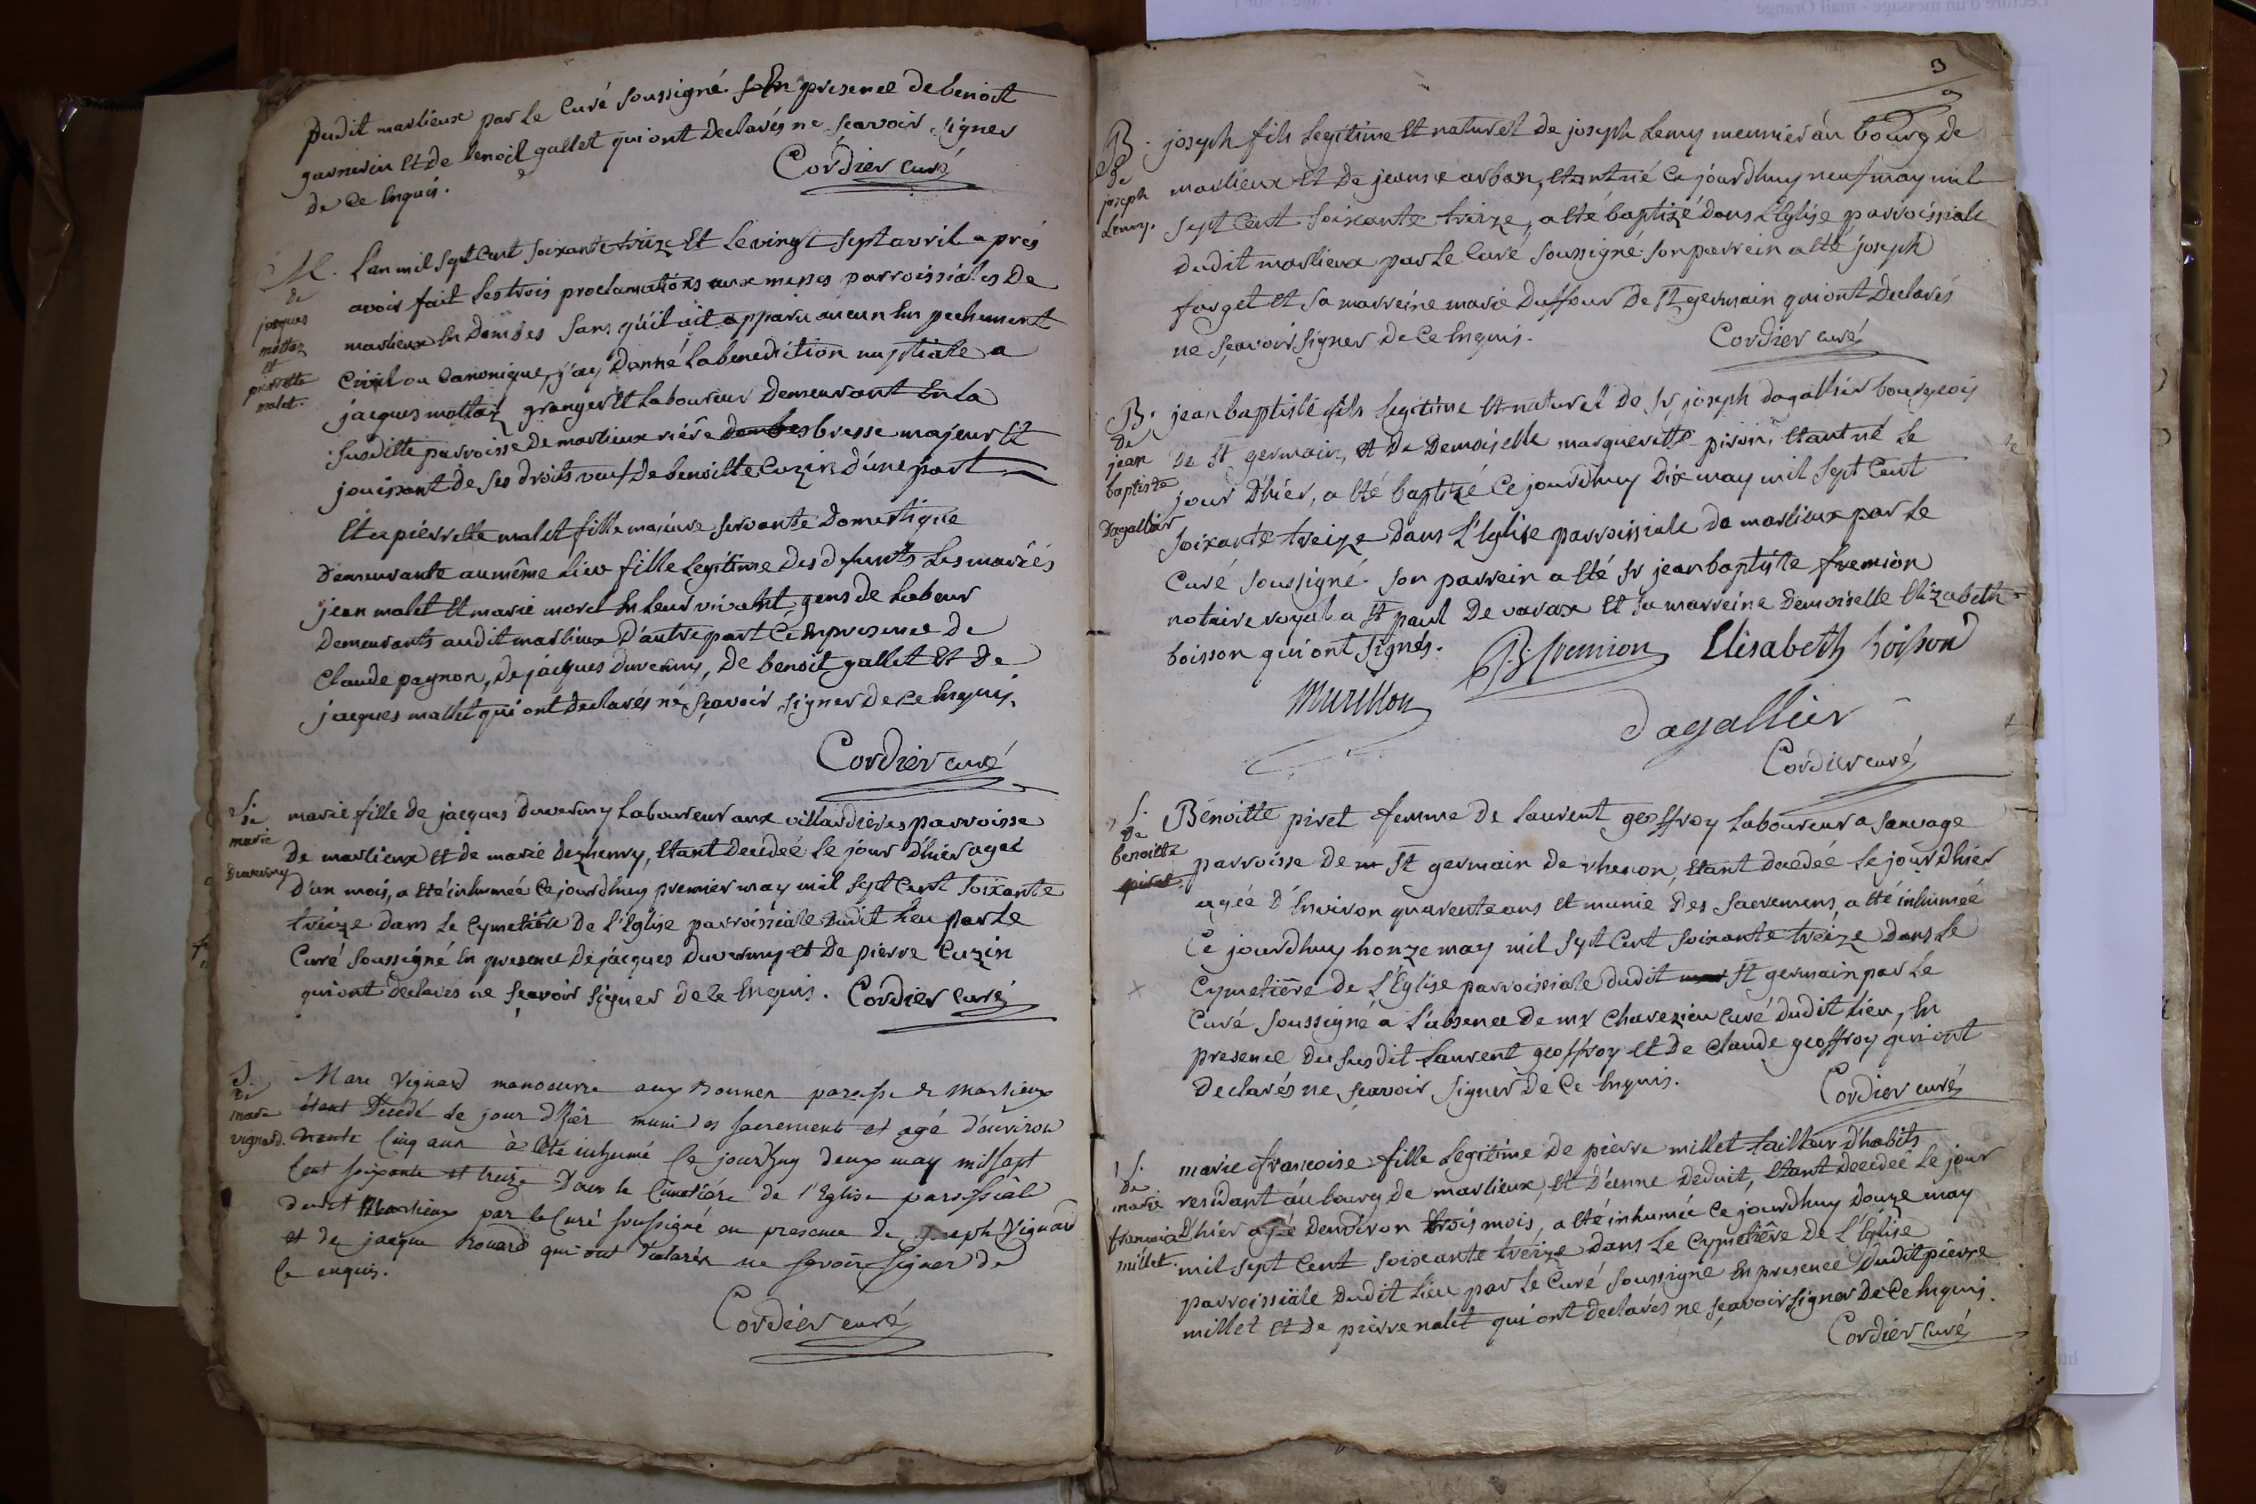 dudit marlieux par le Curé soussigné En presence de benoit
garnerin Et de benoit gallet qui ont declarés ne sçavoir signer
de ce Enquis.
Cordier curé
M. de jacques mottaz et pierrette malet.
Lan mil sept Cent soixante treize Et le vingt sept avril après
avoir fait les trois proclamations aux messes parroissiales de
marlieux En dombes sans qu'il ait apparu aucun Empechement
Civil ou Canonique, j'ay donné la benediction nuptiale a
jacques mottaz granger Et Laboureur demeurant En la
susditte parroisse de marlieux riére dombes bresse majeur Et
jouissant de ses droits veuf de benoitte Cuzin d'une part
Et a pierrette malet fille majeure servante domestique
demeurante au même lieu fille legitime des defunts les mariés
jean malet Et marie morel En leur vivant gens de labeur
demeurants audit marlieux d'autre part Ce En presence de
Claude pagnon, de jacques duverny, de benoit gallet Et de
jacques mallet qui ont declarés ne sçavoir signer de ce Enquis.
Cordier curé
S. de marie Duverny
marie fille de jacques duverny Laboureur aux villardieres parroisse
de marlieux Et de marie dezhenry, Etant decedeé le jour d'hier ageé
d'un mois, a Eté inhumeé Ce jourdhuy premier may mil sept Cent soixante
treize dans le Cymetière de l'Eglise parroissiale dudit lieu par le
Curé soussigné En presence de jacques duverny Et de pierre Cuzin
qui ont declarés ne sçavoir signer de Ce Enquis. Cordier Curé
S. de marc vignard.
Marc Vignard manoeuvre aux Bonnes paroisse de Marlieux
étant Decédé le jour d'hier muni des sacrement et agé d'environ
trente Cinq ans à été inhumé Ce jourdhuy deux may mil sept
Cent soixante et treize Dans le Cimetiére de l'Eglise paroissiale
dudit Marlieux par le Curé soussigné en presence de Joseph Vignard
et de jacque Rouard qui ont déclarés ne savoir signer de
Ce enquis.
Cordier curé
3
B. de joseph Lemy.
joseph fils legitime Et naturel de joseph Lemy meunier au bourg de
marlieux Et de jeanne arban, Etant né Ce jourdhuy neuf may mil
sept Cent soixante treize, a Eté baptizé dans l'Eglise parroissiale
dudit marlieux par le Curé soussigné. son parrein a Eté joseph
forget Et sa marreine marie duffour de St germain qui ont declarés
ne sçavoir signer de Ce Enquis.
Cordier curé
B. de jean baptiste Dagallier
jean baptiste fils legitime Et naturel de Sr joseph dagallier bourgeois
de St germain, et de Demoiselle margueritte pivoin Etant né le
jour d'hier, a Eté baptizé Ce jourdhuy dix may mil sept Cent
soixante treize dans l'Eglise parroissiale de marlieux par le
Curé soussigné. son parrein a Eté Sr jean baptiste fremion
notaire royal a St paul de varax Et sa marreine demoiselle Elizabeth
boisson qui ont signés.
JB fremion Elisabeth boisson
Murillon
Dagallier
Cordier curé
S. de benoitte piret
Benoitte piret femme de laurent geoffroy laboureur a sauvage
parroisse de m St germain de rhenon, Etant decedeé le jour d'hier
ageé d'Environ quarente ans Et munie des sacremens, a Eté inhumeé
Ce jourdhuy honze may mil sept Cent soixante treize dans le
Cymetière de l'Eglise parroissiale dudit mar St germain par le
Curé soussigné a l'absence de mr Chavezieu Curé dudit lieu, En
presence du susdit laurent geoffroy Et de Claude geoffroy qui ont
declarés ne sçavoir signer de Ce Enquis.
Cordier curé
S. de marie francoise millet.
marie francoise fille legitime de pierre millet tailleur d'habits
residant au bourg de marlieux, Et d'anne deduit, Etant decedeé le jour
d'hier ageé denviron trois mois, a Eté inhumeé Ce jourdhuy douze may
mil sept Cent soixante treize dans le Cymetière de l'Eglise
parroissiale dudit lieu par le Curé soussigné En presence dudit pierre
millet Et de pierre malet qui ont declarés ne sçavoir signer de Ce Enquis.
Cordier Curé